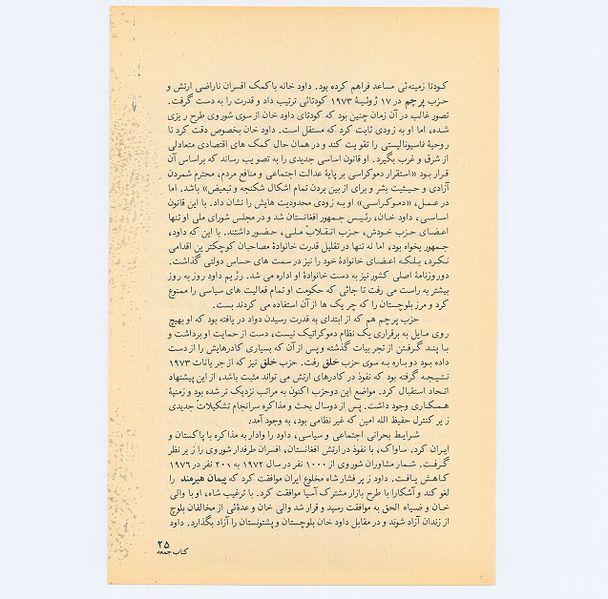 کودتا زمینه‌ئی مساعد فراهم کرده بود. داود خانه باکمک افسران ناراضی ارتش و
حزب پرچم در ۱۷ ژوئیهٔ ۱۹۷۳ کودتائی ترتیب داد و قدرت را به دست گرفت.
تصور غالب در آن زمان چنین بود که کودتای داود خان از سوی شوروی طرح ریزی
شده، اما او به زودی ثابت کرد که مستقل است. داود خان بخصوص دقت کرد تا
روحیهٔ ناسیونالیستی را تقویت کند و در همان حال کمک های اقتصادی متعادلی
از شرق و غرب بگیرد. او قانون اساسی جدیدی را به تصویب رساند که براساس آن
قرار بود «استقرار دموکراسی بر پایهٔ عدالت اجتماعی و منافع مردم، محترم شمردن
آزادی و حیثیت بشر و برای از بین بردن تمام اشکال شکنجه و تبعیض» باشد. اما
در عمل، «دموکراسی» او به زودی محدودیت هایش را نشان داد. با این قانون
اساسی، داود خان، رئیس جمهور افغانستان شد و در مجلس شورای ملی او تنها
اعضای حزب خودش، حزب انقلاب ملی، حضور داشتند. با این که داود،
جمهور یخواه بود، اما نه تنها در تقلیل قدرت خانوادهٔ مصاحبان کوچکترین اقدامی
نکرد، بلکه اعضای خانوادهٔ خود را نیز در سمت های حساس دولتی گذاشت.
دو روزنامهٔ اصلی کشور نیز به دست خانوادهٔ او اداره می شد. رژیم داود روز به روز
بیشتر به راست می رفت تا جائی که حکومت او تمام فعالیت های سیاسی را ممنوع
کرد و مرز بلوچستان را که چریک ها از آن استفاده می کردند بست.
حزب پرچم هم که از ابتدای به قدرت رسیدن دواد در یافته بود که او بهیچ
روی مایل به برقراری یک نظام دموکراتیک نیست، دست از حمایت او برداشت و
با پند گرفتن از تجربیات گذشته و پس از آن که بسیاری کادرهایش را از دست
داده بود دوباره به سوی حزب خلق رفت. حزب خلق نیز که از جریانات ۱۹۷۳
نتیجه گرفته بود که نفوذ در کادرهای ارتش می تواند مثبت باشد، از این پیشنهاد
اتحاد استقبال کرد. مواضع این دوحزب اکنون به مراتب نزدیک تر شده بود و زمینهٔ
همکاری وجود داشت. پس از دوسال بحث و مذاکره سرانجام تشکیلات جدیدی
زیر کنترل حفیظ الله امین که غیر نظامی بود، به وجود آمد.
شرایط بحرانی اجتماعی و سیاسی، داود را وادار به مذاکره با پاکستان و
ایران کرد. ساواک، با نفوذ در ارتش افغانستان، افسران طرفدار شوروی را زیر نظر
گرفت. شمار مشاوران شوروی از ۱۰۰۰ نفر در سال ۱۹۷۲ به ۲۰۰ نفر در ۱۹۷۶
کاهش یافت. داود زیر فشار شاه مخلوع ایران موافقت کرد که پیمان هیرمند را
لغو کند و آشکارا با طرح بازار مشترک آسیا موافقت کرد. با ترغیب شاه، او با والی
خان و ضیاء الحق به موافقت رسید و قرار شد والی خان و عده‌ئی از مخالفان بلوچ
از زندان آزاد شوند و در مقابل داود خان بلوچستان و پشتونستان را آزاد بگذارد. داود
۲۵
کتاب جمعه